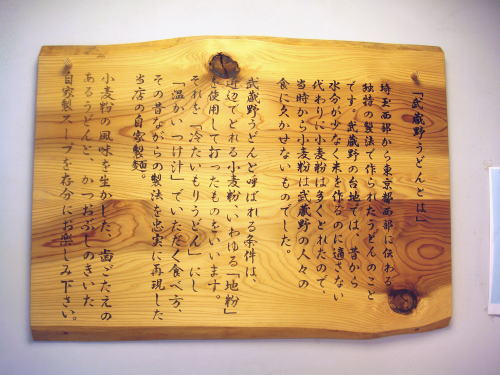 「武蔵野うどんとは」
埼玉西部から東京都西部に伝わる
独特の製法で作られたうどんのこと
です。武蔵野の台地では、昔から
水分が少なく米を作るのに適さない
代わりに小麦粉は多くとれたので、
当時から小麦粉は武蔵野の人々の
食に欠かせないものでした。
武蔵野うどんと呼ばれる条件は、
近辺でとれる小麦粉、いわゆる「地粉」
を使用しておったものをいいます。
それを、「冷たいもりうどん」にし
「温かいつけ汁」でいただく食べ方、
その昔ながらの製法を忠実に再現した
当店の自家製麺。
小麦粉の風味を生かした、歯ごたえの
あるうどんと、かつおぶしのきいた
自家製スープを存分にお楽しみ下さい。